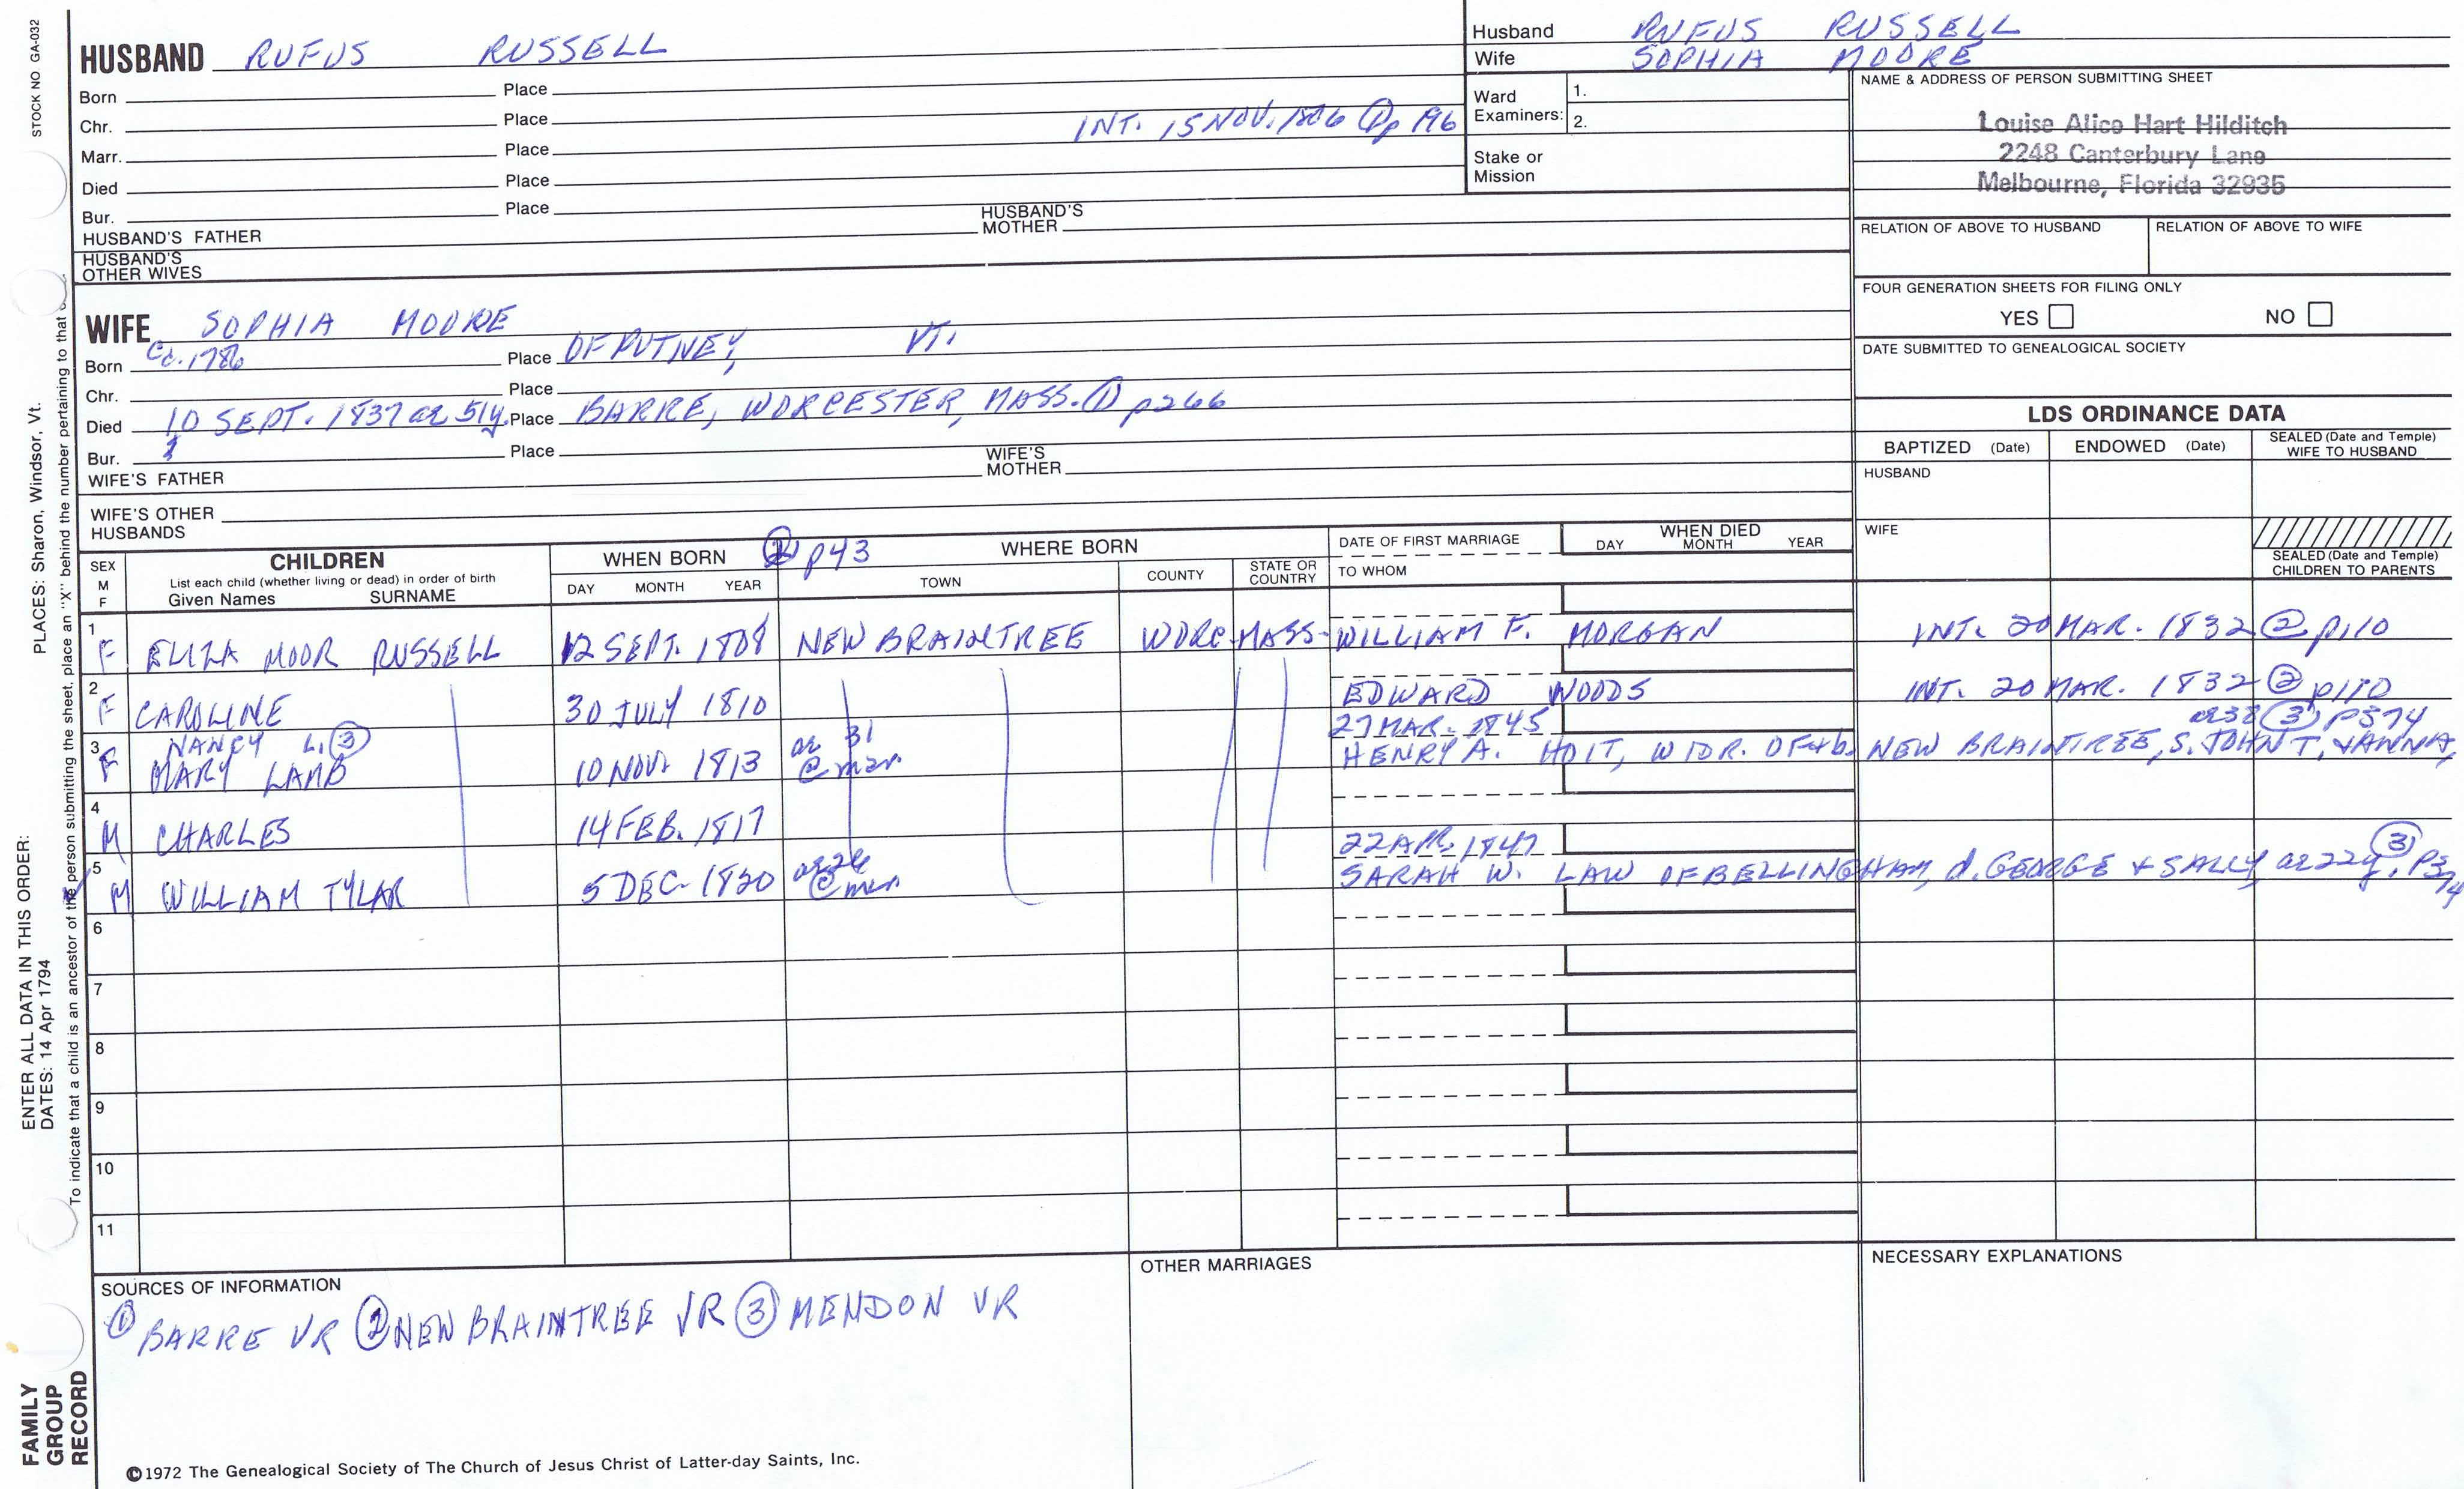 STOCK NO. GA-032
HUSBAND RUFUS RUSSELL
Born Place
Chr. Place
Marr. Place INT. 15 NOV. 1806 ① p 196
Died Place
Bur. Place
HUSBAND'S FATHER HUSBAND'S MOTHER
HUSBAND'S OTHER WIVES
Husband RUFUS RUSSELL
Wife SOPHIA MOORE
Ward Examiners: 1.
2.
Stake or Mission
NAME & ADDRESS OF PERSON SUBMITTING SHEET
Louise Alice Hart Hilditch
2248 Canterbury Lane
Melbourne, Florida 32935
RELATION OF ABOVE TO HUSBAND RELATION OF ABOVE TO WIFE
FOUR GENERATION SHEETS FOR FILING ONLY
YES NO
DATE SUBMITTED TO GENEALOGICAL SOCIETY
WIFE SOPHIA MOORE
Born Cc. 1786 Place OF PUTNEY, VT.
Chr. Place
Died 10 SEPT. 1837 ae 51y. Place BARRE, WORCESTER, MASS. ① p266
Bur. Place
WIFE'S FATHER WIFE'S MOTHER
WIFE'S OTHER HUSBANDS
LDS ORDINANCE DATA
BAPTIZED (Date) ENDOWED (Date) SEALED (Date and Temple) WIFE TO HUSBAND
HUSBAND
WIFE
SEALED (Date and Temple) CHILDREN TO PARENTS
SEX M F
CHILDREN
List each child (whether living or dead) in order of birth
Given Names SURNAME
WHEN BORN ② p43
DAY MONTH YEAR
WHERE BORN
TOWN COUNTY STATE OR COUNTRY
DATE OF FIRST MARRIAGE
TO WHOM
WHEN DIED
DAY MONTH YEAR
1 F ELIZA MOOR RUSSELL 12 SEPT. 1808 NEW BRAINTREE WORC. MASS. WILLIAM F. MORGAN INT. 20 MAR. 1832 ② p110
2 F CAROLINE 30 JULY 1810 EDWARD WOODS INT. 20 MAR. 1832 ② p110
NANCY L. ③ 27 MAR. 1845 ae38 ③ p374
3 F MARY LAMB 10 NOV. 1813 ae 31 @ mar. HENRY A. HOIT, WIDR. OF & b. NEW BRAINTREE, S. JOHN T. & ANNA
4 M CHARLES 14 FEB. 1817
22 APR. 1847
5 M WILLIAM TYLAR 5 DEC. 1820 ae 26 @ mar. SARAH W. LAW OF BELLINGHAM, d. GEORGE & SALLY, ae 22y. ③ P374
6
7
8
9
10
11
SOURCES OF INFORMATION
① BARRE VR ② NEW BRAINTREE VR ③ MENDON VR
OTHER MARRIAGES
NECESSARY EXPLANATIONS
©1972 The Genealogical Society of The Church of Jesus Christ of Latter-day Saints, Inc.
ENTER ALL DATA IN THIS ORDER:
DATES: 14 Apr 1794 PLACES: Sharon, Windsor, Vt.
To indicate that a child is an ancestor of the person submitting the sheet, place an "X" behind the number pertaining to that
FAMILY GROUP RECORD